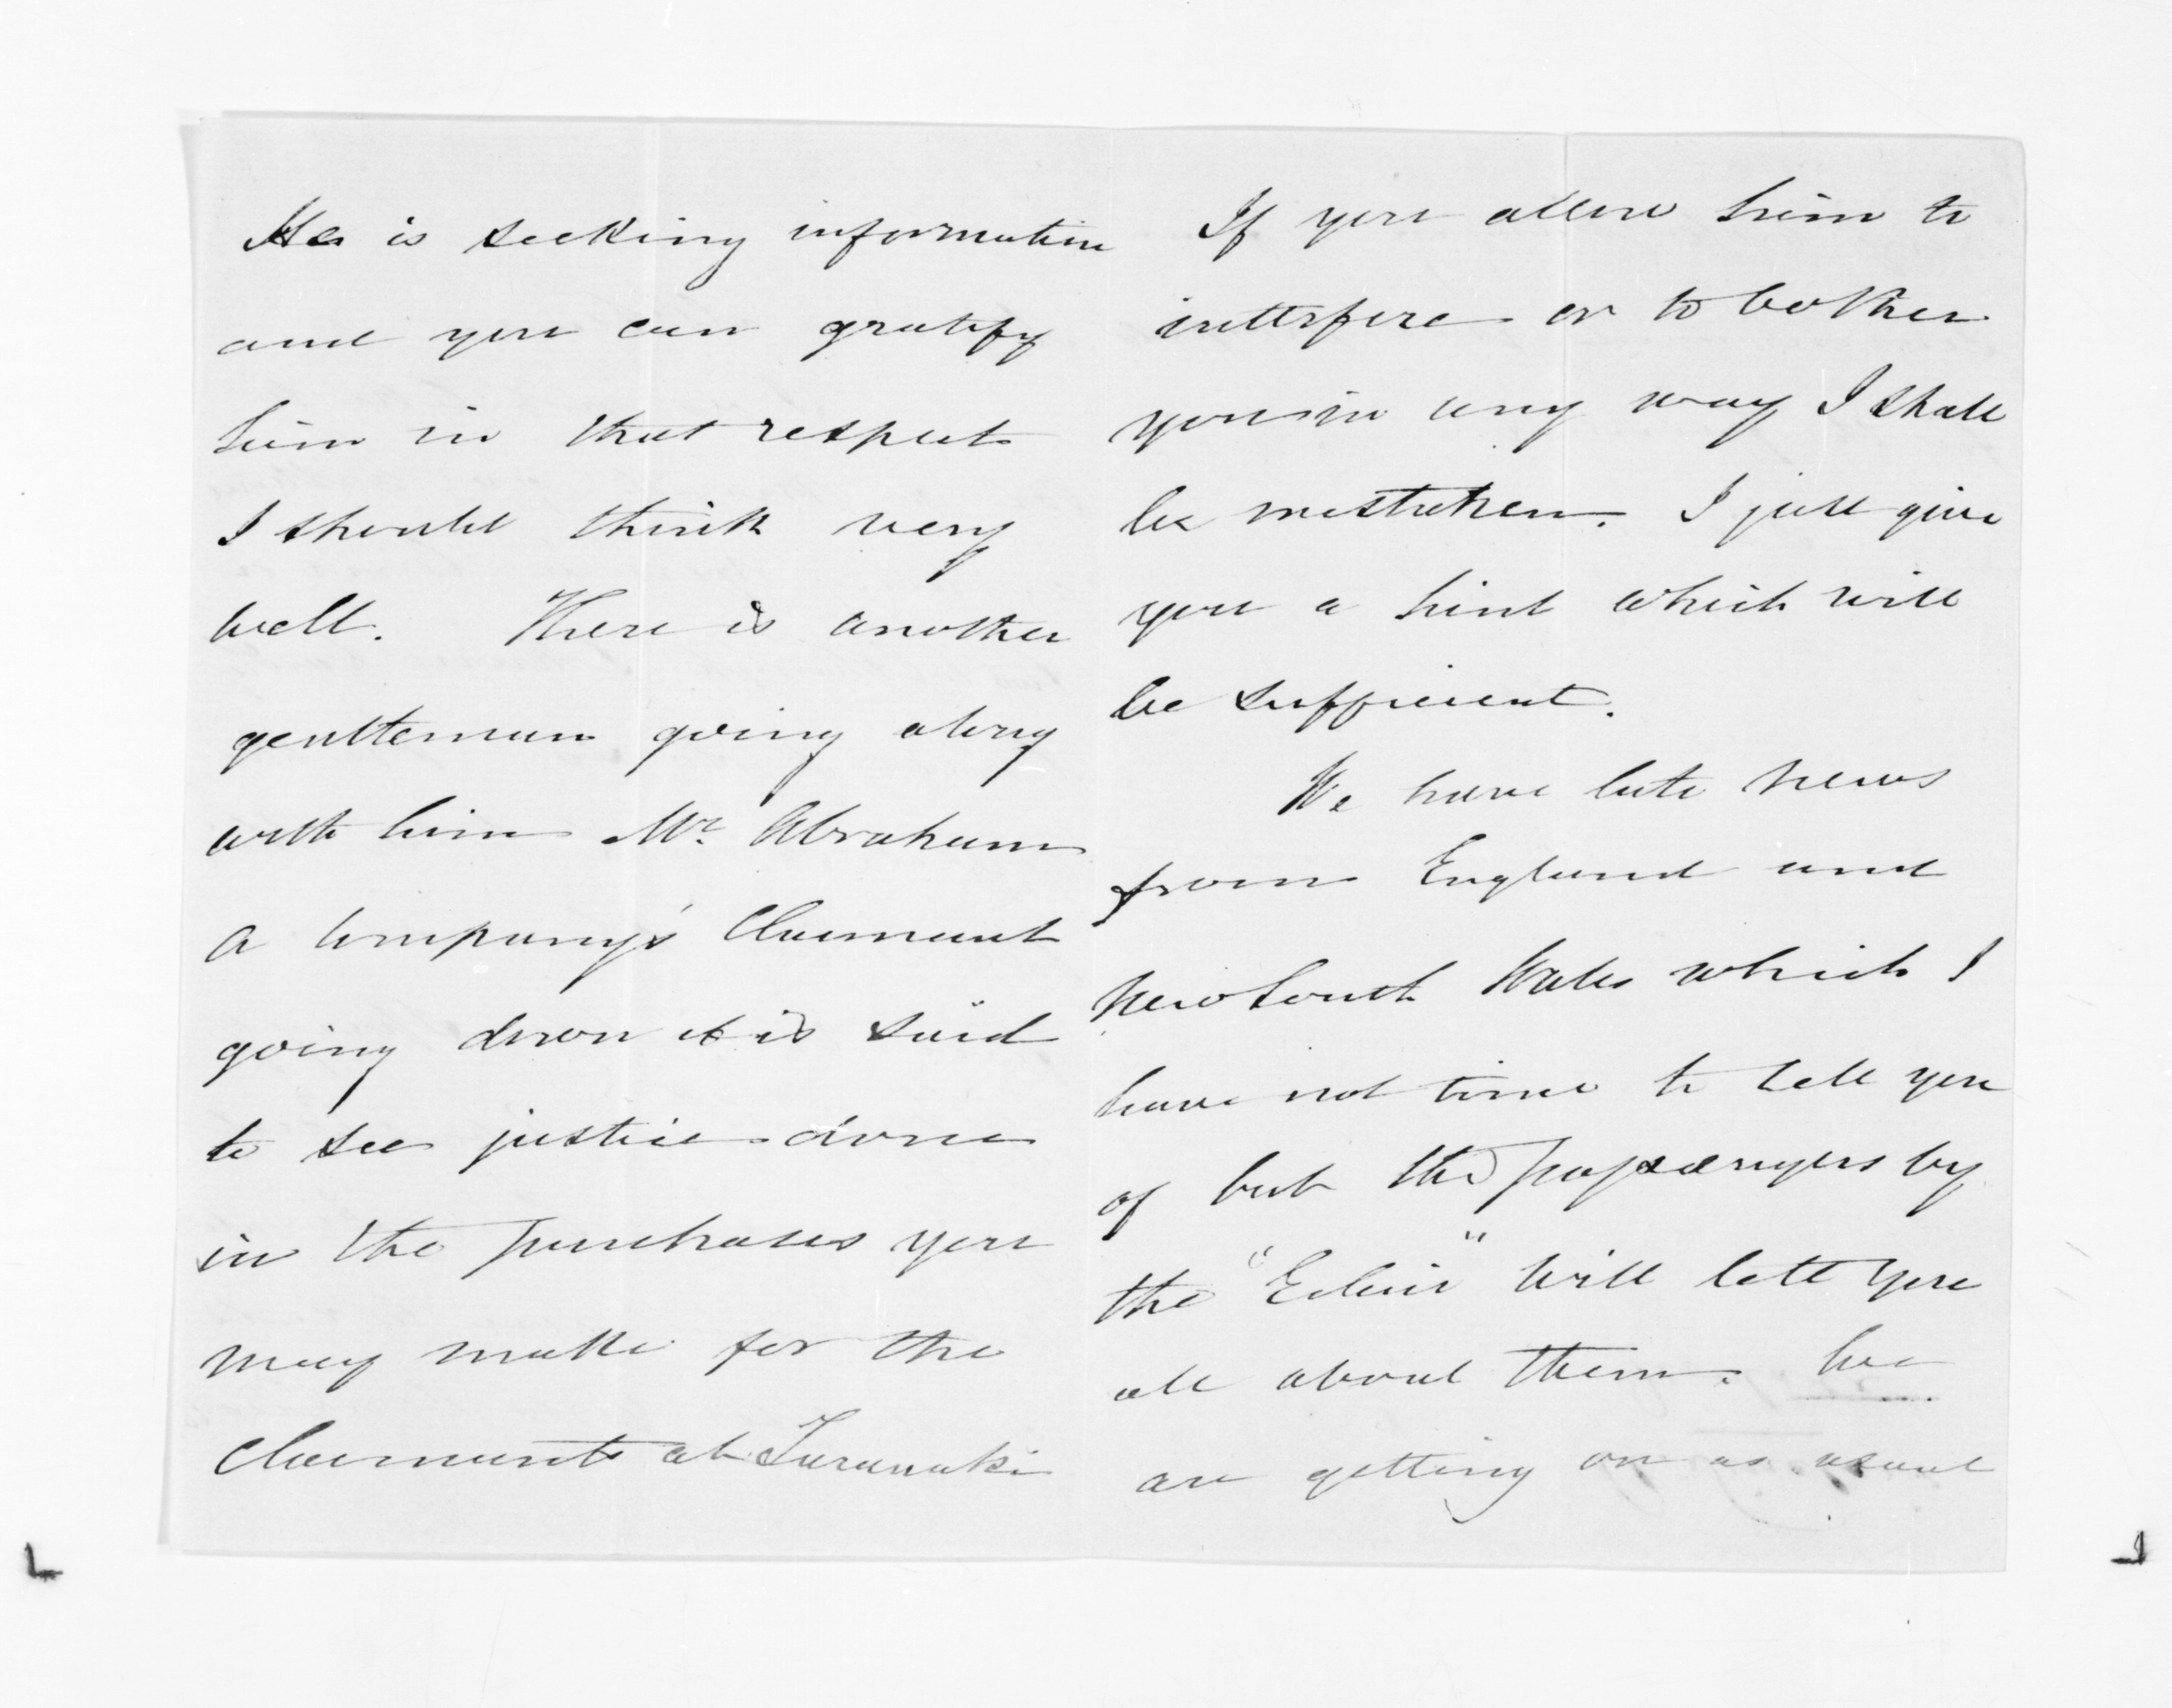 He is seeking information
and you can gratify
him in that respect
I should think very
well. There is another
gentleman going along
with him Mr. Abraham
a Company's Claimant
going down it is said
to see justice done
in the purchases you
may make for the
Claimants at Taranaki
If you allow him to
interfere or to bother
you in any way I shall
be mistaken. I just give
you a hint which will
be sufficient.
We have late news
from England and
New South Wales which I
have not time to tell you
of but the passengers by
the "Edwin" will tell you
all about them. We
are getting on as usual